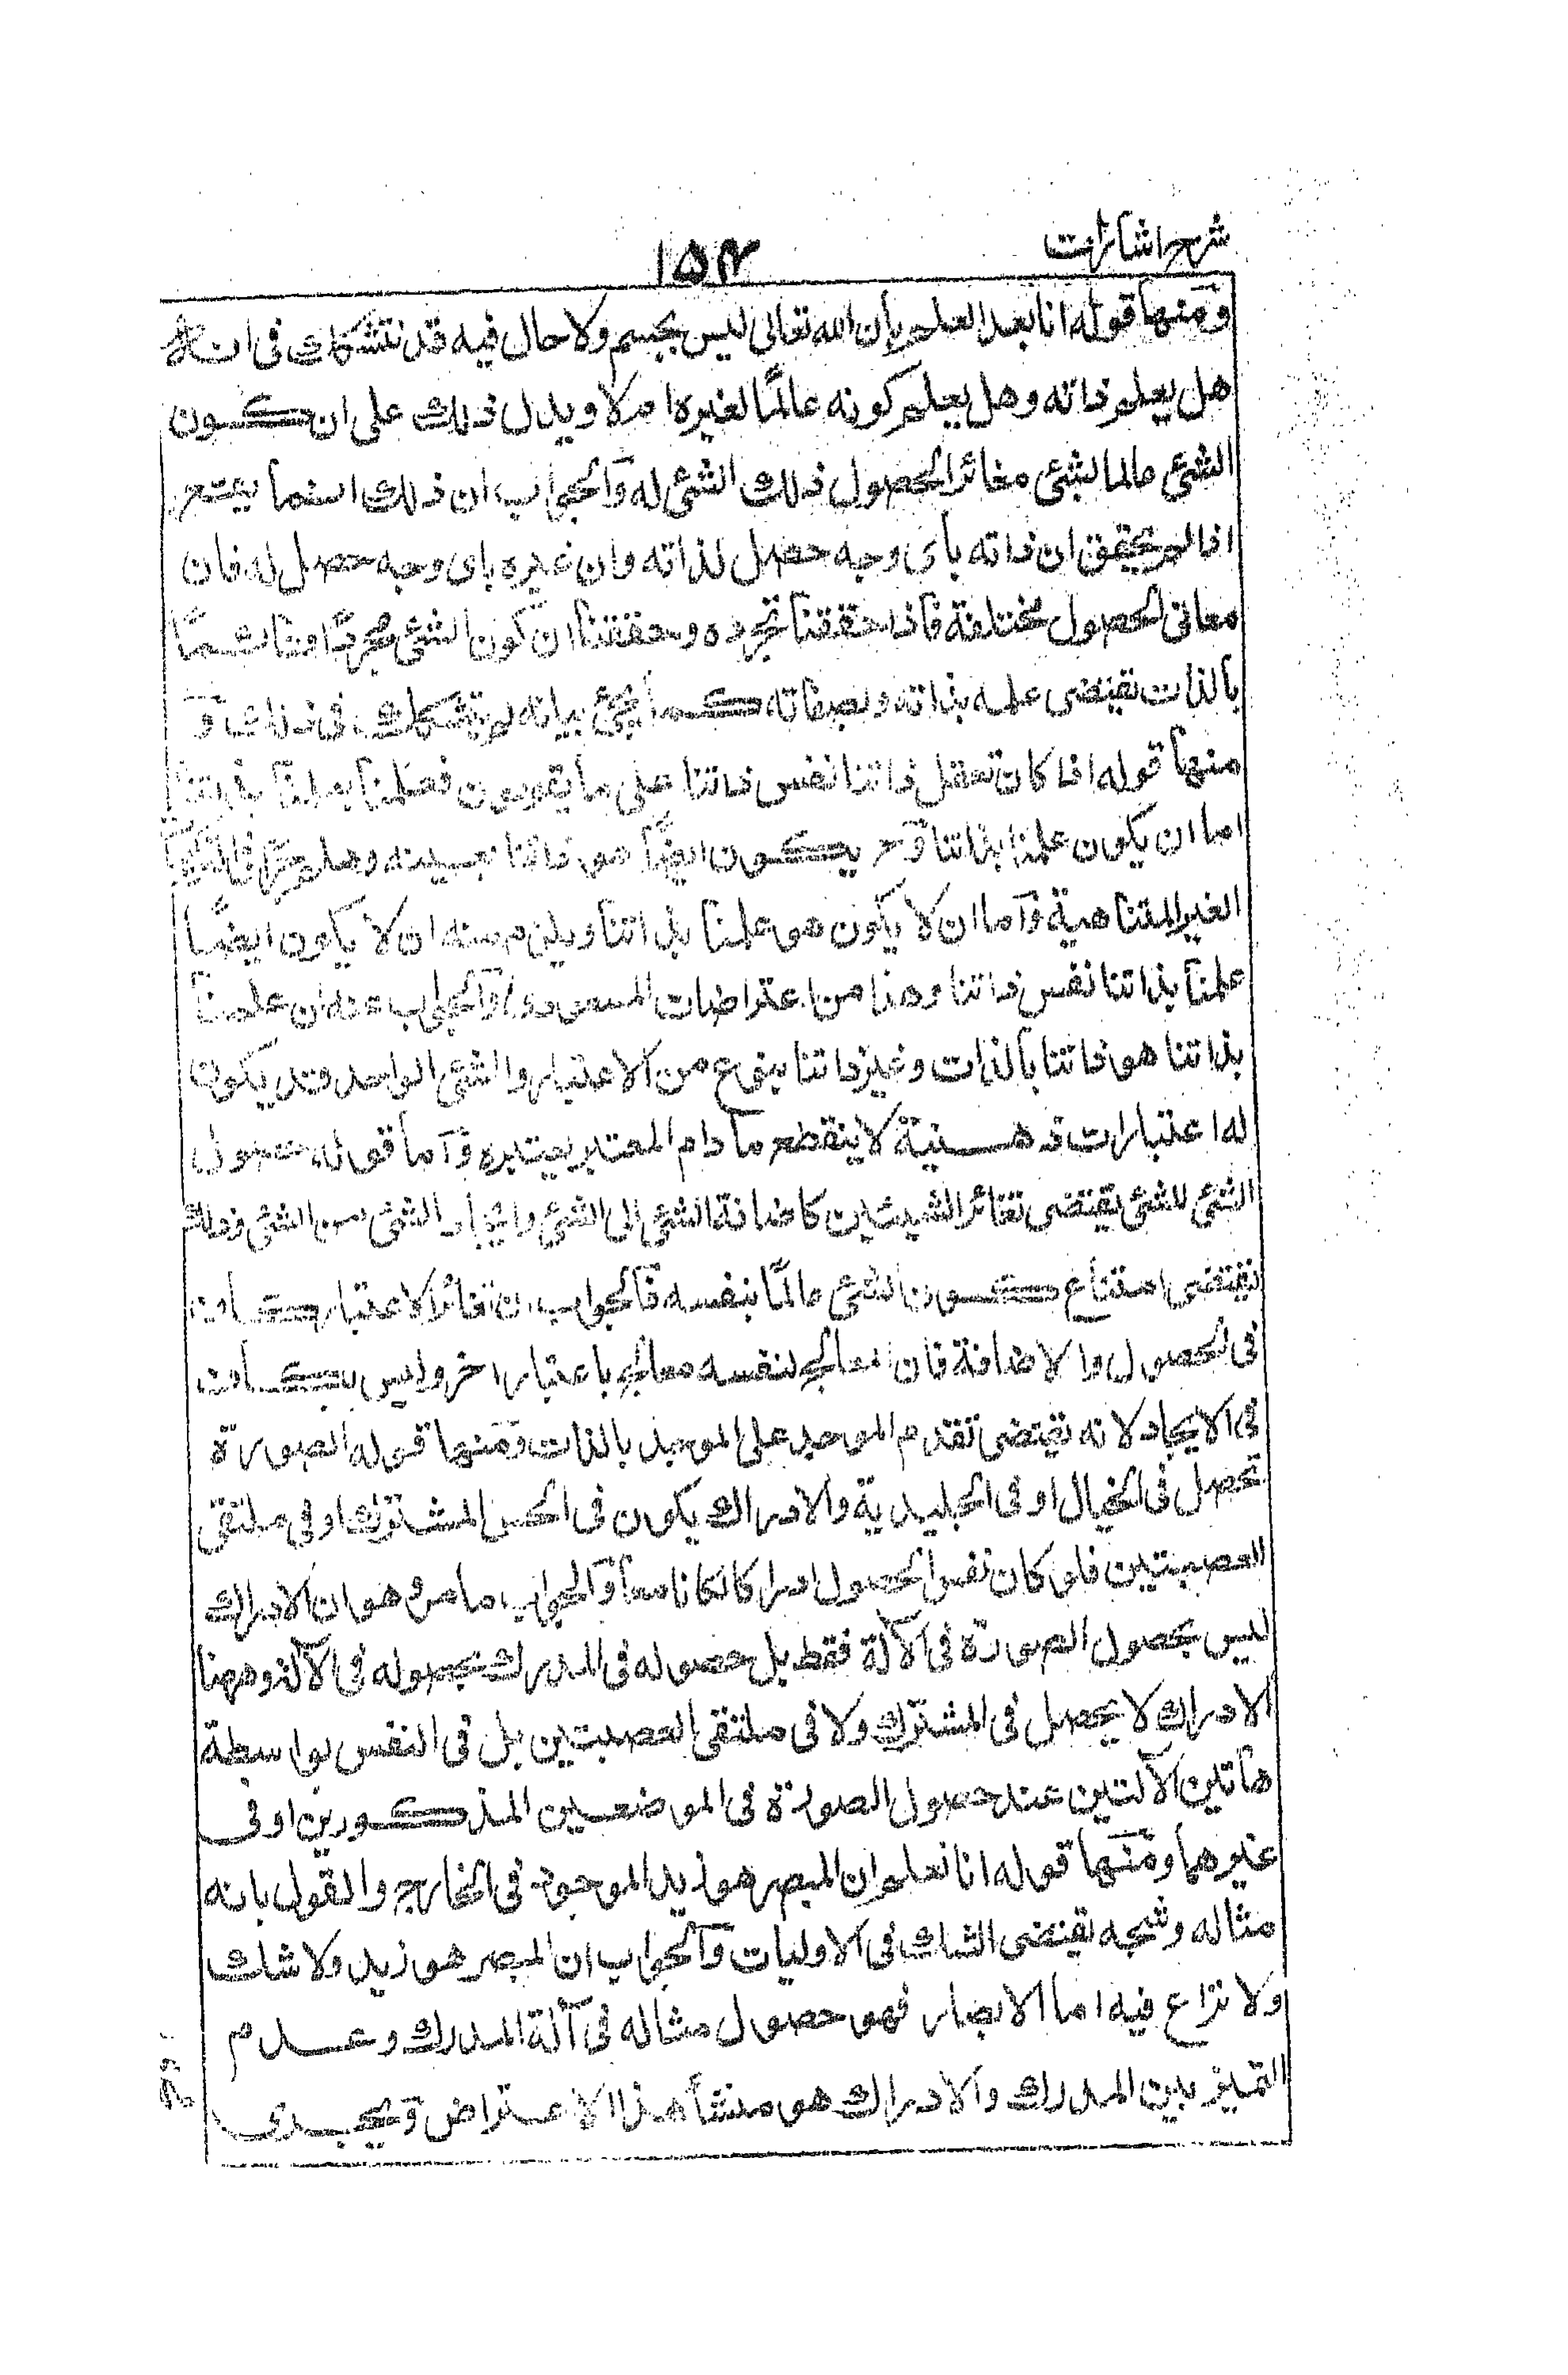 شرح اشارات
۱۵۴
ومنها قوله انا بعد العلم بأن الله تعالى ليس بجسم ولا حال فيه قد نتشكك فى انه
هل يعلم ذاته وهل يعلم كونه عالمًا لغيره ام لا ويدل ذلك على ان كون
الشئ عالما لشئ مغائر لحصول ذلك الشئ له وَالجواب ان ذلك انما يتع
اذا لم يحقق ان ذاته بأى وجه حصل لذاته وان غيره باى وجه حصل له فان
معانى الحصول مختلفة فَاذا حققنا تجرده وحققنا ان كون الشئ مجردًا قائمًا
بالذات يقتضى علمه بذاته وبصفاته كما يجئ بيانه لم يتشكك فى ذلك وَ
منها قوله اذا كان تعقل ذاتنا نفس ذاتنا على ما يقولون فعلمنا بعلمنا بذاتنا
اما ان يكون علمنا بذاتنا وَح يكون ايضًا هو ذاتنا بعينه وهلم جرًا فى التركيبات
الغير المتناهية وَاما ان لا يكون هو علمنا بذاتنا ويلزم منه ان لا يكون ايضًا
علمنا بذاتنا نفس ذاتنا وهذا من اعتراضات المسعودى وَالجواب عنه ان علمنا
بذاتنا هو ذاتنا بالذات وغير ذاتنا بنوع من الاعتبار والشئ الواحد قد يكون
له اعتبارات ذهنية لا ينقطع ما دام المعتبر يعتبره وَاما قوله حصول
الشئ للشئ يقتضى تغائر الشيئين كاضافة الشئ الى الشئ وايجاد الشئ من الشئ وذلك
يقتضى امتناع كون الشئ عالمًا بنفسه فَالجواب ان تغائر الاعتبار كاف
فى الحصول والاضافة فان المعالج لنفسه معالج باعتبار اخر وليس بكاف
فى الايجاد لانه يقتضى تقدم الموجد على الموجد بالذات وَمنها قوله الصورة
تحصل فى الخيال او فى الجليدية والادراك يكون فى الحس المشترك او فى ملتقى
العصبتين فلو كان نفس الحصول ادراكا لكانا معا وَالجواب ما مر وهو ان الادراك
ليس بحصول الصورة فى الآلة فقط بل حصوله فى المدرك بحصوله فى الآلة وههنا
الادراك لا يحصل فى المشترك ولا فى ملتقى العصبتين بل فى النفس بواسطة
هاتين الآلتين عند حصول الصورة فى الموضعين المذكورين او فى
غيرهما وَمنها قوله انا نعلم ان المبصر هو زيد الموجود فى الخارج والقول بانه
مثاله وشبحه يقتضى الشك فى الاوليات وَالجواب ان المبصر هو زيد ولا شك
ولا نزاع فيه اما الابصار فهو حصول مثاله فى آلة المدرك وعدم
التميز بين المدرك والادراك هو منشأ هذا الاعتراض وَيجدى